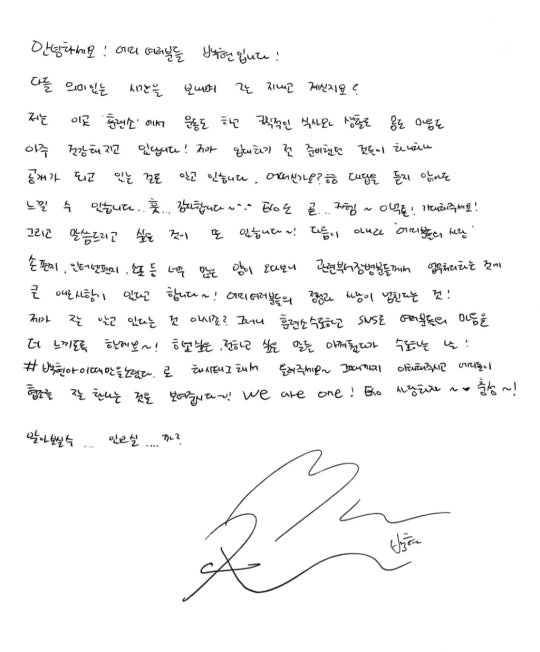 안녕하세요! 에리 여러분들 백현입니다!
다들 의미있는 시간을 보내며 잘 지내고 계신지요?
저는 이곳 '훈련소'에서 운동도 하고 규칙적인 식사와 생활로 몸도 마음도
아주 건강해지고 있습니다! 제가 입대하기 전 준비했던 것들이 하나하나
공개가 되고 있는 걸로 알고 있습니다. 어떠신가요? 대답을 듣지 않아도
느낄 수 있습니다.. 훗... 감사합니다~^.^ EXO도 곧... 기대해주세요!
그리고 말씀드리고 싶은 것이 또 있습니다~! 다름이 아니라 '에리여러분들의 사랑'
손편지, 인터넷편지, 등 너무 많은 양이 오다보니 관련부서장병분들께서 업무처리하는 것에
큰 애로사항이 있다고 합니다~! 에리여러분들의 정성과 사랑이 넘친다는 것!
제가 잘 알고 있다는 것 아시죠? 그러니 훈련소수료하고 SNS로 여러분들의 마음을
더 느끼도록 할게요~! 하고싶은, 전하고 싶은 말들 아껴뒀다가 수료하는 날!
#백현아이때만을노렸다. 로 해시태그해서 들려주세요~ 그때까지 이해해주시고 에리들이
협조를 잘 한다는 것을 보여줍시다~! We are one! EXO 사랑하자~♥ 충성~!
알아보실수... 있으실....까?
백현